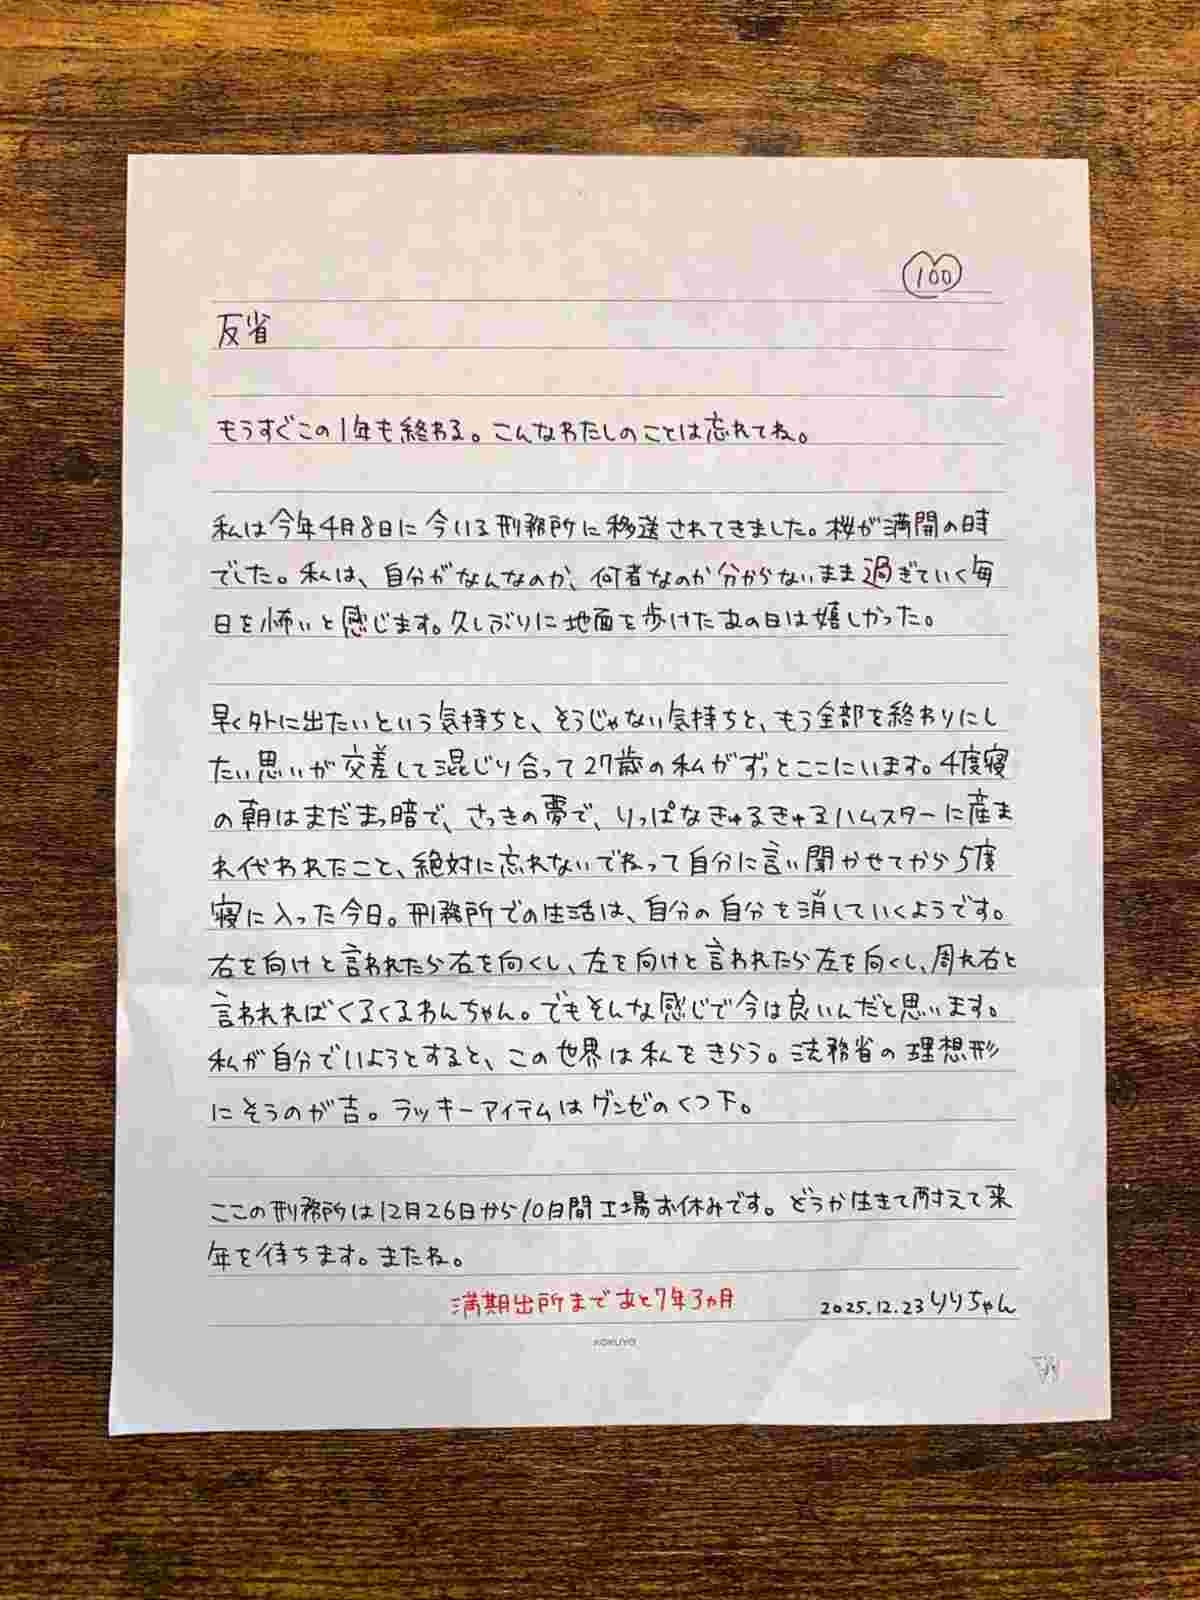 100
反省
もうすぐこの1年も終わる。こんなわたしのことは忘れてね。
私は今年4月8日に今いる刑務所に移送されてきました。桜が満開の時
でした。私は、自分がなんなのか、何者なのか分からないまま過ぎていく毎
日を怖いと感じます。久しぶりに地面を歩けたあの日は嬉しかった。
早く外に出たいという気持ちと、そうじゃない気持ちと、もう全部を終わりにし
たい思いが交差して混じり合って27歳の私がずっとここにいます。4度寝
の朝はまだまっ暗で、さっきの夢で、りっぱなきゅるきゅるハムスターに産ま
れ代われたこと、絶対に忘れないでねって自分に言い聞かせてから5度
寝に入った今日。刑務所での生活は、自分の自分を消していくようです。
右を向けと言われたら右を向くし、左を向けと言われたら左を向くし、周れ右と
言われればくるくるわんちゃん。でもそんな感じで今は良いんだと思います。
私が自分でいようとすると、この世界は私をきらう。法務省の理想形
にそうのが吉。ラッキーアイテムはグンゼのくつ下。
ここの刑務所は12月26日から10日間工場お休みです。どうか生きて耐えて来
年を待ちます。またね。
満期出所まであと7年3ヵ月
2025.12.23りりちゃん
KOKUYO